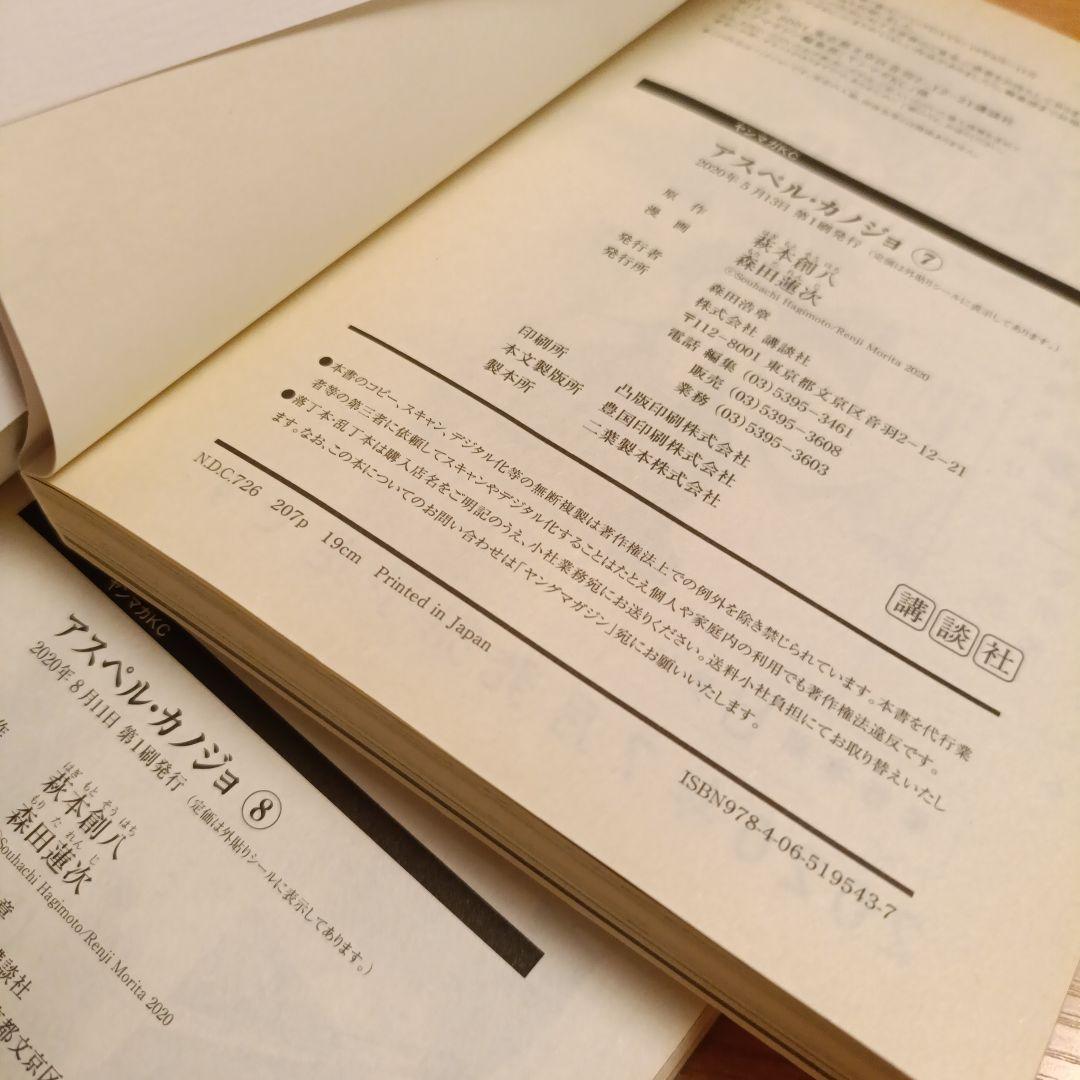 ヤンマガKC
アスペル・カノジョ ⑦
2020年5月13日 第1刷発行 (定価は外貼りシールに表示してあります。)
原作 萩本創八
漫画 森田蓮次
©Souhachi Hagimoto/Renji Morita 2020
発行者 森田浩章
発行所 株式会社 講談社
〒112-8001 東京都文京区音羽2-12-21
電話 編集 (03)5395-3461
販売 (03)5395-3608
業務 (03)5395-3603
印刷所 凸版印刷株式会社
本文製版所 豊国印刷株式会社
製本所 二葉製本株式会社
講談社
●本書のコピー、スキャン、デジタル化等の無断複製は著作権法上での例外を除き禁じられています。本書を代行業
者等の第三者に依頼してスキャンやデジタル化することはたとえ個人や家庭内の利用でも著作権法違反です。
●落丁本・乱丁本は購入店名をご明記のうえ、小社業務宛にお送りください。送料小社負担にてお取り替えいたし
ます。なお、この本についてのお問い合わせは「ヤングマガジン」宛にお願いいたします。
N.D.C.726 207p 19cm Printed in Japan
ISBN978-4-06-519543-7
ヤンマガKC
アスペル・カノジョ ⑧
2020年8月11日 第1刷発行 (定価は外貼りシールに表示してあります。)
作
はぎ もと そう はち
萩本創八
もり た れん じ
森田蓮次
©Souhachi Hagimoto/Renji Morita 2020
章
談社
都文京区